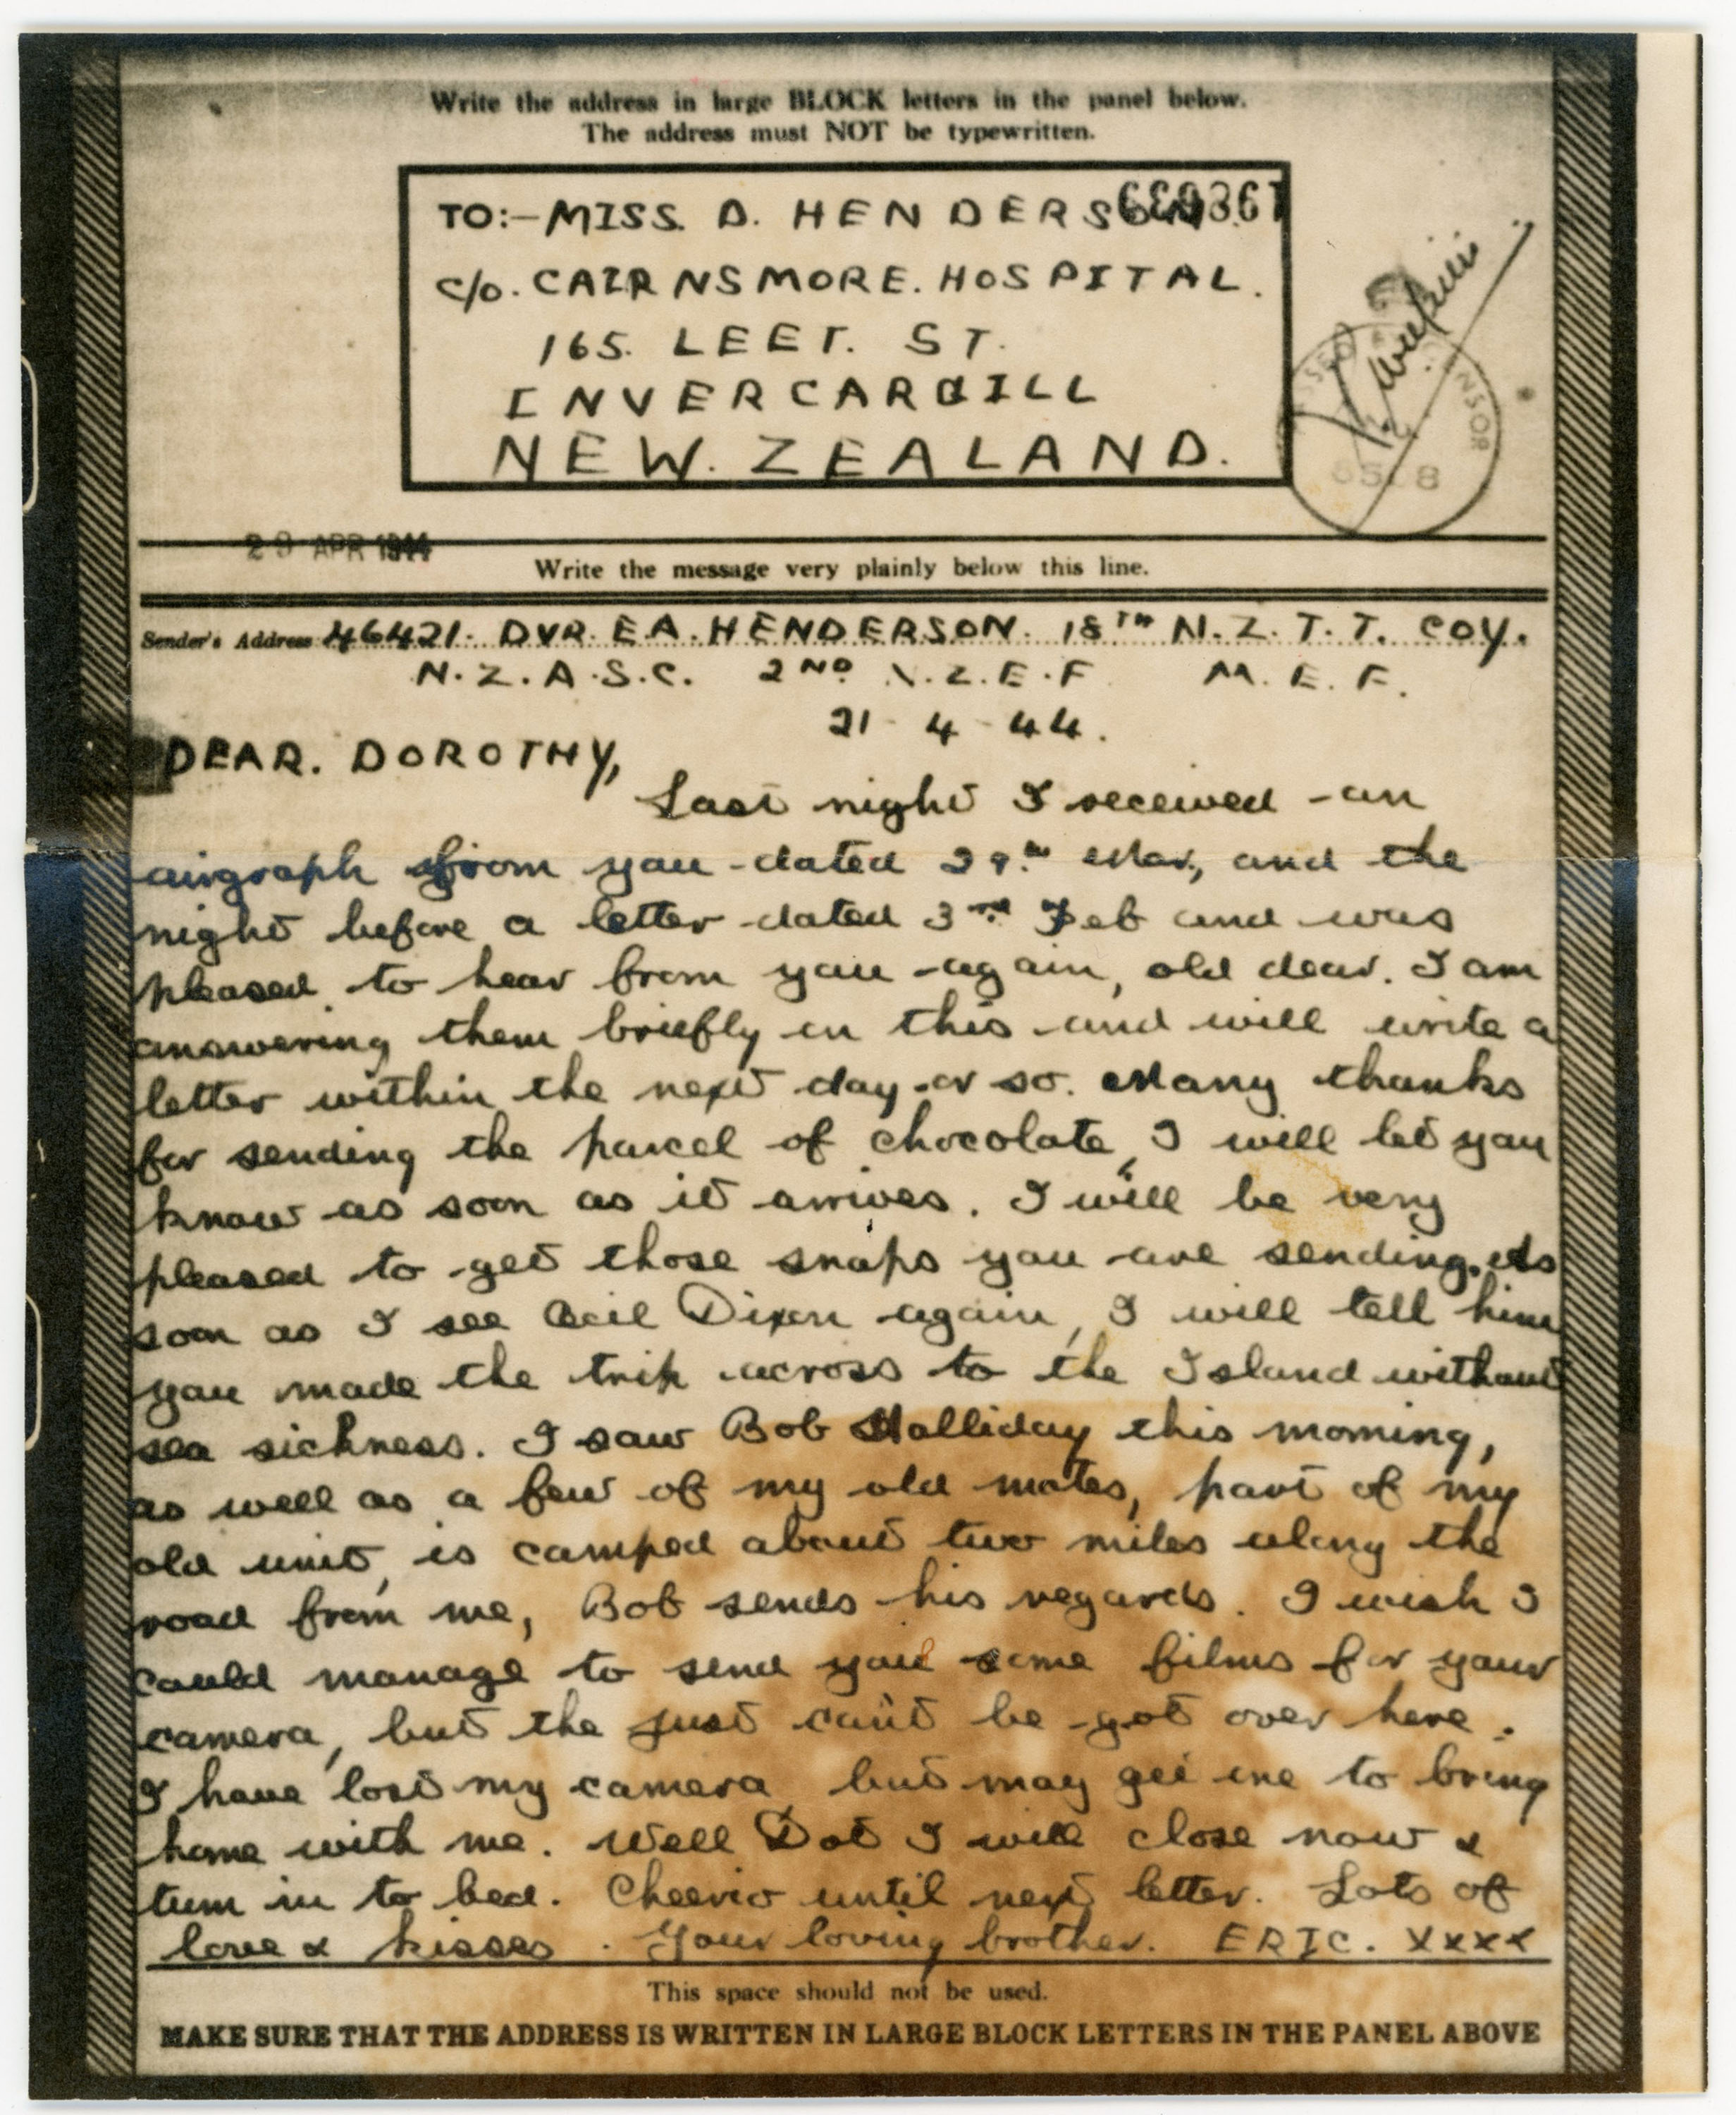 Write the address in large BLOCK letters in the panel below.
The address must NOT be typewritten.
TO:- MISS. D. HENDERSON.
C/O. CAIRNSMORE. HOSPITAL.
165. LEET. ST.
INVERCARGILL
NEW. ZEALAND.
29 APR 1944
Write the message very plainly below this line.
Sender's Address 46421. DVR. E.A. HENDERSON. 18TH N.Z.T.T. COY.
N.Z.A.S.C. 2ND N.Z.E.F M.E.F.
21-4-44.
DEAR. DOROTHY,
Last night I received an
airgraph from you dated 29th Mar, and the
night before a letter dated 3rd Feb and was
pleased to hear from you again, old dear. I am
answering them briefly in this and will write a
letter within the next day or so. Many thanks
for sending the parcel of chocolate, I will let you
know as soon as it arrives. I will be very
pleased to get those snaps you are sending. As
soon as I see Cecil Dixon again, I will tell him
you made the trip across to the Island without
sea sickness. I saw Bob Halliday this morning,
as well as a few of my old mates, part of my
old unit, is camped about two miles along the
road from me, Bob sends his regards. I wish I
could manage to send you some films for your
camera, but the just can't be got over here.
I have lost my camera but may get one to bring
home with me. Well Dot I will close now &
turn in to bed. Cheerio until next letter. Lots of
love & kisses. Your loving brother. ERIC. xxxx
This space should not be used.
MAKE SURE THAT THE ADDRESS IS WRITTEN IN LARGE BLOCK LETTERS IN THE PANEL ABOVE